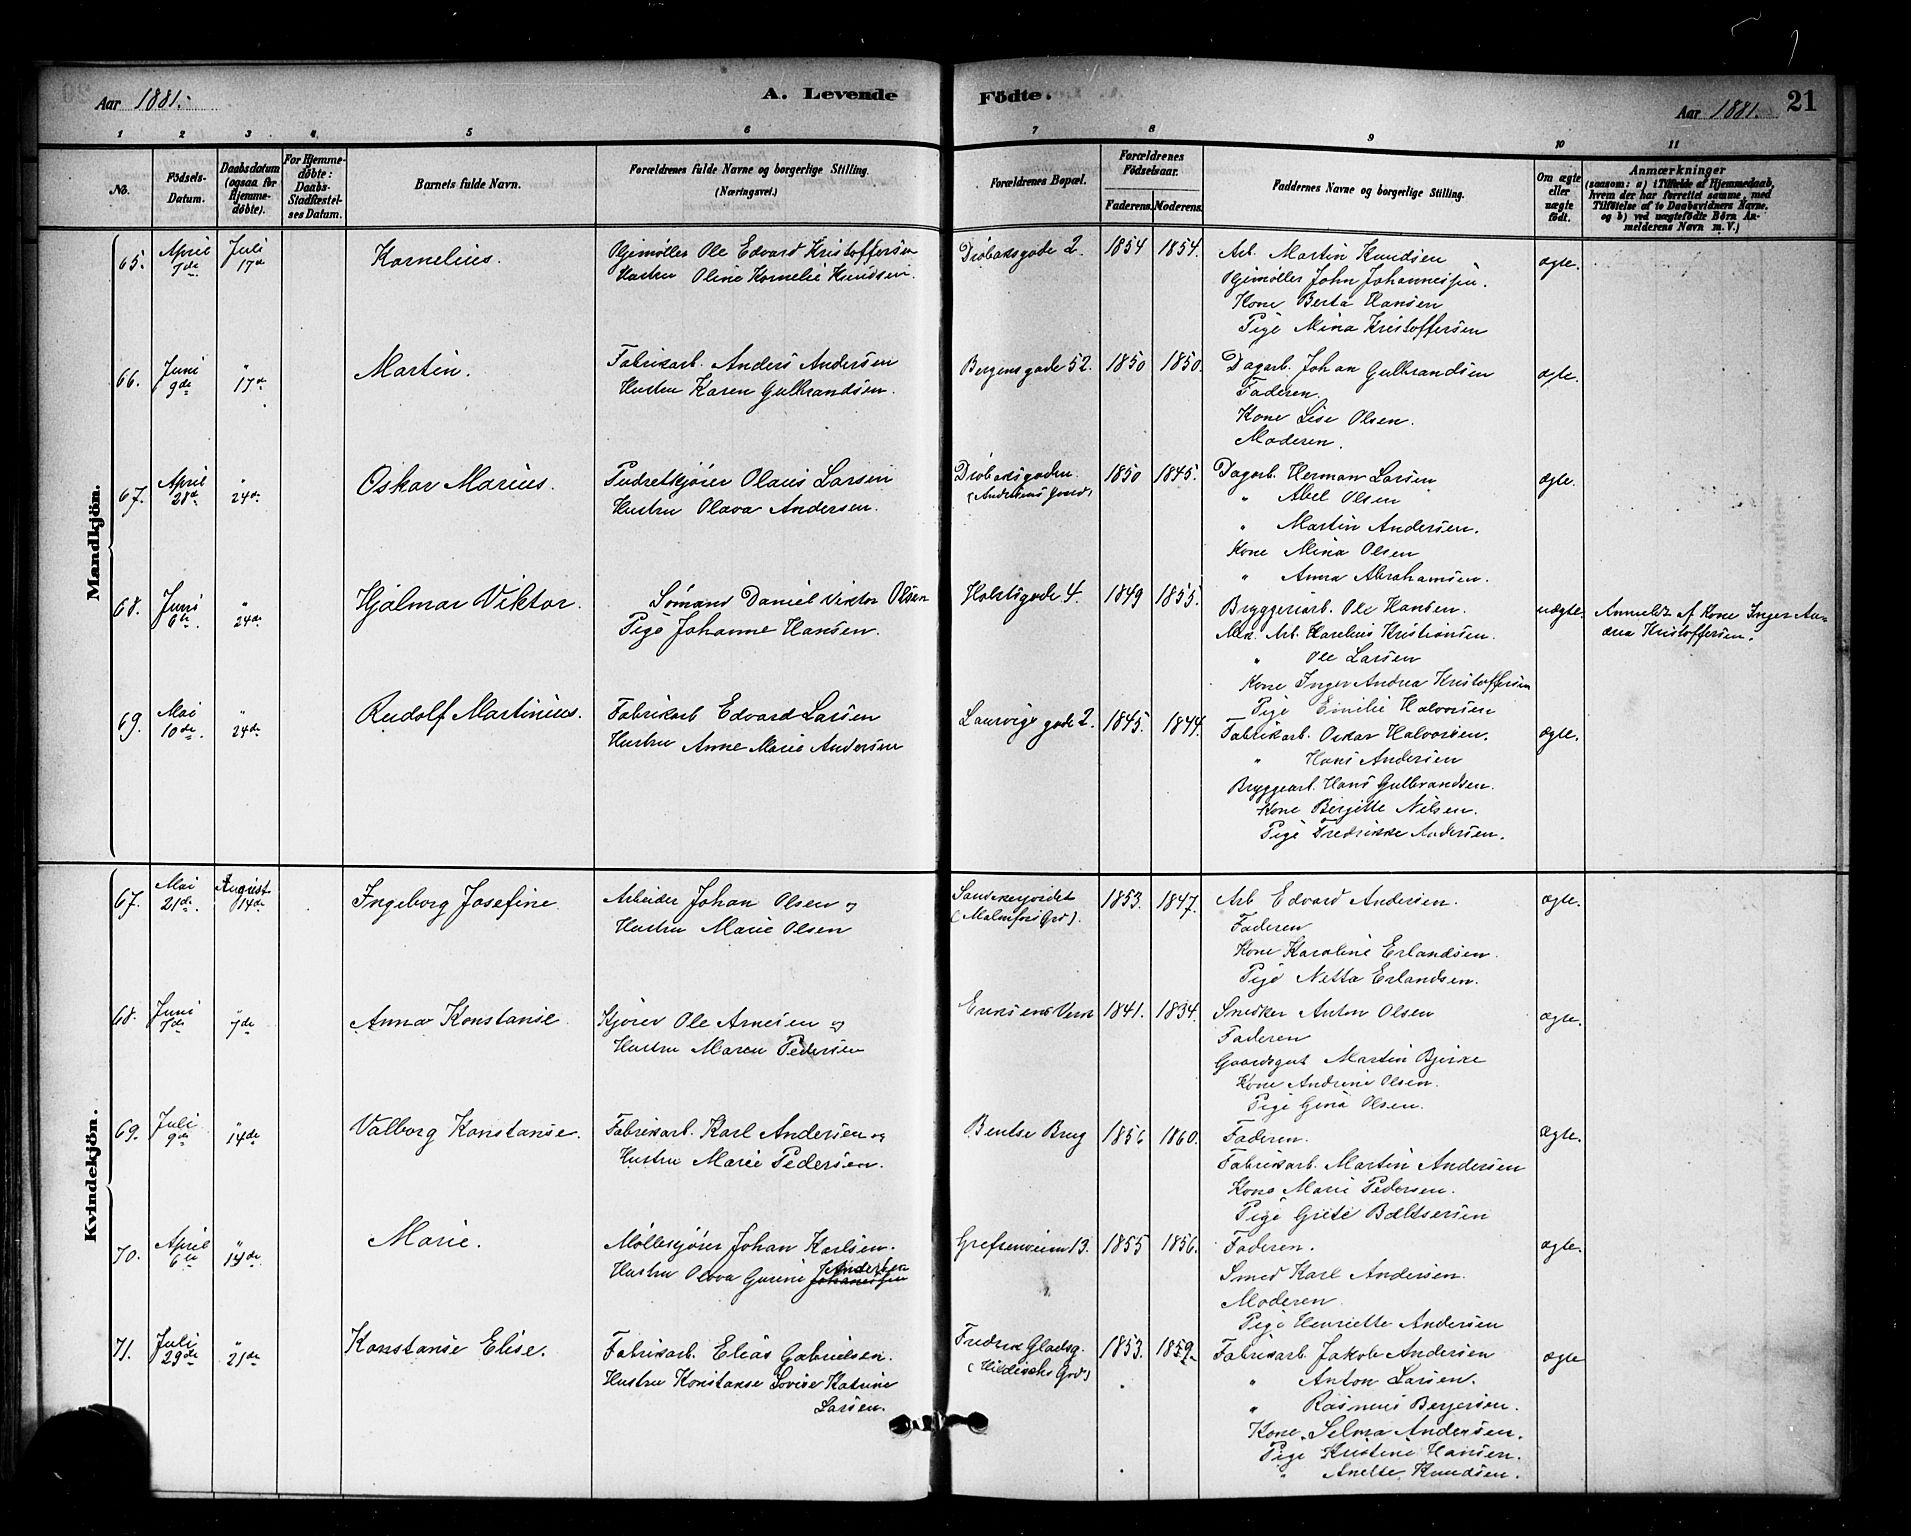 Aar 1881.
A. Levende Födte.
Aar 1881.
21
1 2 3 4 5 6 7 8 9 10 11
No.
Födsels-
Datum.
Daabsdatum
(ogsaa for
Hjemme-
döbte).
For Hjemme-
döbte:
Daabs-
Stadfæstel-
ses Datum.
Barnets fulde Navn.
Forældrenes fulde Navne og borgerlige Stilling.
(Næringsvei.)
Forældrenes Bopæl.
Forældrenes
Födselsaar.
Faderens. Moderens.
Faddernes Navne og borgerlige Stilling.
Om ægte
eller
uægte
födt.
Anmærkninger
(saasom: a) i Tilfælde af Hjemmedaab,
hvem der har forrettet samme, med
Tilföielse af to Daabsvidners Navne,
og b) ved uægtefödte Börn An-
melderens Navn m. V.)
Mandkjön.
65. April 7de Juli 17de Kornelius. Oljemöller Ole Edvard Kristoffersen
Hustru Oline Kornelie Knudsen.
Dröbaksgade 2. 1854 1854.
Arb. Martin Knudsen
Oljemöller John Johannessen.
Kone Berta Hansen
Pige Mina Kristoffersen
ægte.
66. Juni 9de " 17de Martin. Fabrikarb. Anders Andersen
Hustru Karen Gulbrandsen.
Bergensgade 52. 1850 1850.
Dagarb. Johan Gulbrandsen
Faderen.
Kone Lise Olsen.
Moderen.
ægte.
67. April 28de " 24de Oskar Marius. Pudretkjörer Olaus Larsen
Hustru Olava Andersen.
Dröbaksgaden
1850 1845.
Dagarb. Herman Larsen
" Abel Olsen
" Martin Andersen.
Kone Mina Olsen
" Anna Abrahamsen.
ægte.
68. Juni 6te " 24de Hjalmar Viktor. Sömand Daniel Viktor Olsen
Pige Johanne Hansen.
Holstsgade 4. 1849 1855.
Bryggeriarb. Ole Hansen.
Arb. Karelius Kristiansen.
" Ole Larsen
Kone Inger Andrea Kristoffersen
Pige Emilie Halvorsen
uægte.
Anmeldt af Kone Inger An-
drea Kristoffersen.
69. Mai 10de " 24de Rudolf Martinius. Fabrikarb Edvard Larsen
Hustru Anne Marie Andersen
Laurvigsgade 2. 1845. 1844.
Fabrikarb. Oskar Halvorsen.
" Hans Andersen
Bryggearb. Hans Gulbrandsen.
Kone Birgitte Nilsen.
Pige Fredrikke Andersen.
ægte.
Kvindekjön.
67. Mai 21de August 14de Ingeborg Josefine Arbeider Johan Olsen og
Hustru Marie Olsen
1853. 1847.
Arb Edvard Andersen.
Faderen
Kone Karoline Erlandsen.
Pige Netta Erlandsen.
ægte.
68. Juni 7de " 7de Anna Konstanse Kjörer Ole Arnesen og
Hustru Maren Pedersen
1841. 1834.
Snedker Anton Olsen
Faderen
Gaardsgut Martin Bjerke
Kone Andrine Olsen.
Pige Gina Olsen.
ægte.
69. Juli 9de " 14de Valborg Konstanse. Fabrikarb. Karl Andersen og
Hustru Marie Pedersen.
Bentse Brug 1856 1860.
Faderen.
Fabrikarb. Martin Andersen
Kone Marie Pedersen.
Pige Grete Baltsersen
ægte.
70. April 6te " 14de Marie. Möllekjörer Johan Karlsen.
Hustru Olava Gurine Johannessen Andersen
Grefsenveien 13. 1855 1856.
Faderen.
Smed Karl Andersen.
Moderen
Pige Henriette Andersen
ægte.
71. Juli 29de " 21de Konstanse Elise. Fabrikarb. Elias Gabrielsen.
Hustru Konstanse Lovise Katrine
Larsen.
1853. 1859.
Fabrikarb. Jakob Andersen
" Anton Larsen.
" Rasmus Bergersen.
Kone Selma Andersen.
Pige Kristine Hansen.
" Anette Knudsen.
ægte